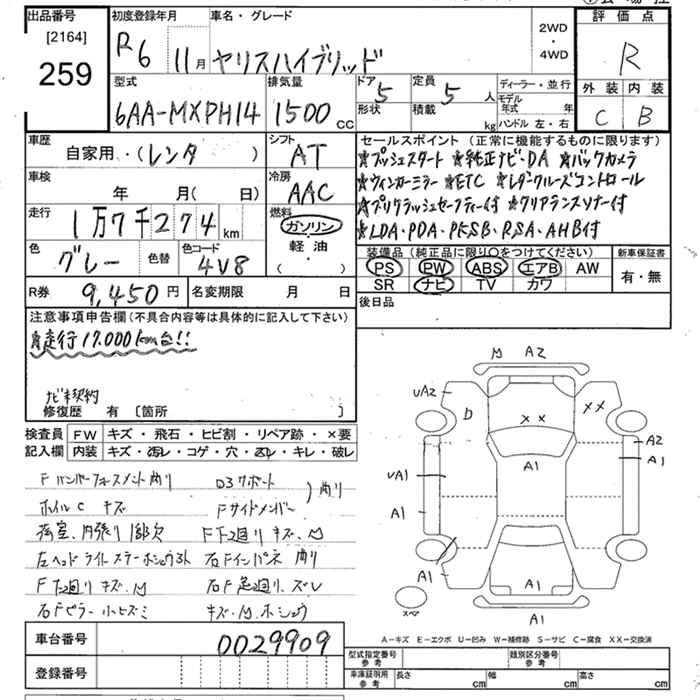 出品番号
[2164]
259
初度登録年月
R6 11月
車名・グレード
ヤリスハイブリッド
2WD
・
4WD
評価点
R
外装 内装
C B
型式
6AA-MXPH14
排気量
1500 cc
ドア 5
形状
定員 5 人
積載 kg
ディーラー・並行
モデル年式 年
ハンドル 左・右
車歴
自家用・(レンタ )
シフト
AT
車検
年 月( 日)
冷房
AAC
走行
1万7千274 km
燃料
ガソリン
・軽油・
( )
色
グレー
色替
色コード
4V8
R券 9,450円
名変期限 月 日
セールスポイント(正常に機能するものに限ります)
★プッシュスタート ★純正ナビ・DA ★バックカメラ
★ウィンカーミラー ★ETC ★レーダークルーズコントロール
★プリクラッシュセーフティー付 ★クリアランスソナー付
★LDA・PDA・PKSB・RSA・AHB付
装備品(純正品に限り○をつけてください)
PS PW ABS エアB AW
SR ナビ TV カワ
新車保証書
有・無
後日品
注意事項申告欄(不具合内容等は具体的に記入して下さい)
★走行17,000km台!!
修復歴 有〔箇所 〕
検査員記入欄
FW キズ・飛石・ヒビ割・リペア跡・×要
内装 キズ・汚レ・コゲ・穴・スレ・キレ・破レ
Fバンパーフォースメント曲り
D3サポート
Fサイドメンバー
)曲り
ホイルC キズ
荷室、内張り1部欠
F下回りキズ、M
左ヘッドライトステーホシュウ跡
右Fインパネ 曲り
F下回りキズ、M
右F足廻り、ズレ
右Fピラー小ヒズミ
キズ、M、ホシュウ
M A2
UA2
D
××
××
A1
A2
A1
UA1
A1
A1
A1
A1
スペア
A−キズ E−エクボ U−凹み W−補修跡 S−サビ C−腐食 XX−交換済
車台番号
0029909
登録番号
型式指定番号
参考
類別区分番号
参考
車庫証明用
参考
長さ cm
幅 cm
高さ cm